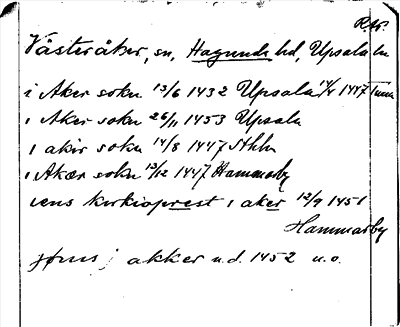 R.A.
Västeråker, sn, Hagunda hd, Upsala ln
i Aker sokn 13/6 1432 Upsala 14/4 1447 Tuna
i Aker sokn 26/11 1453 Upsala
i akir sokn 14/8 1447 Sthlm
i Akær sokn 13/12 1447 Hammarby
iens kirkioprest i aker 12/9 1451
Hammarby
jøns j akker u.d. 1452 u.o.